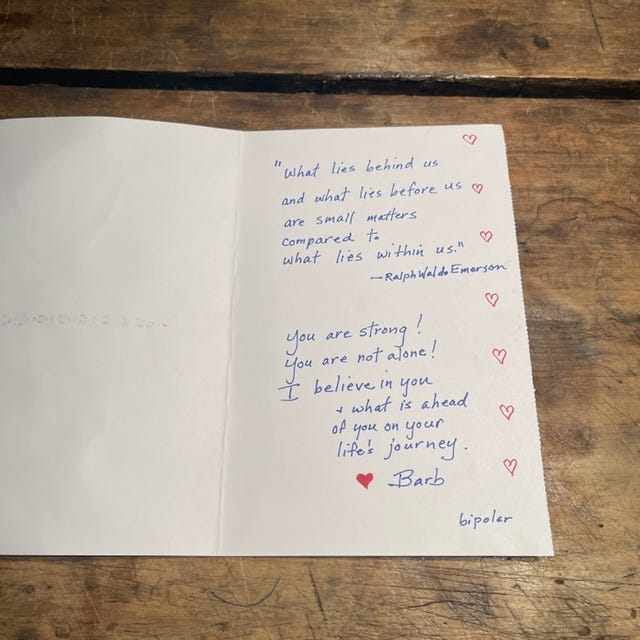 "What lies behind us
and what lies before us
are small matters
compared to
what lies within us."
—Ralph Waldo Emerson
You are strong!
You are not alone!
I believe in you
+ what is ahead
of you on your
life's journey.
Barb
bipolar